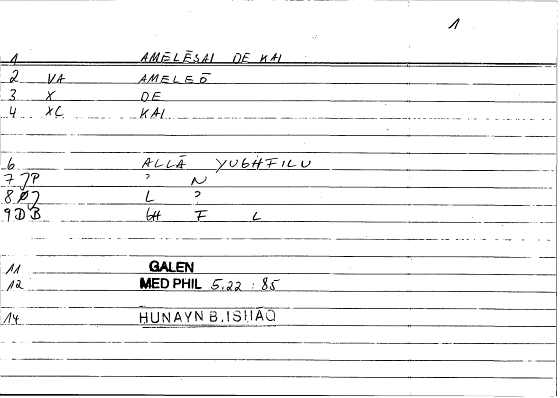 1
1 AMELĒSAI DE KAI
2 VA AMELEŌ
3 X DE
4 XC KAI
6 ALLĀ YUGHFILU
7 JP ' N
8 L '
9 DB GH F L
11 GALEN
12 MED PHIL 5.22 : 85
14 HUNAYN B.ISHĀQ